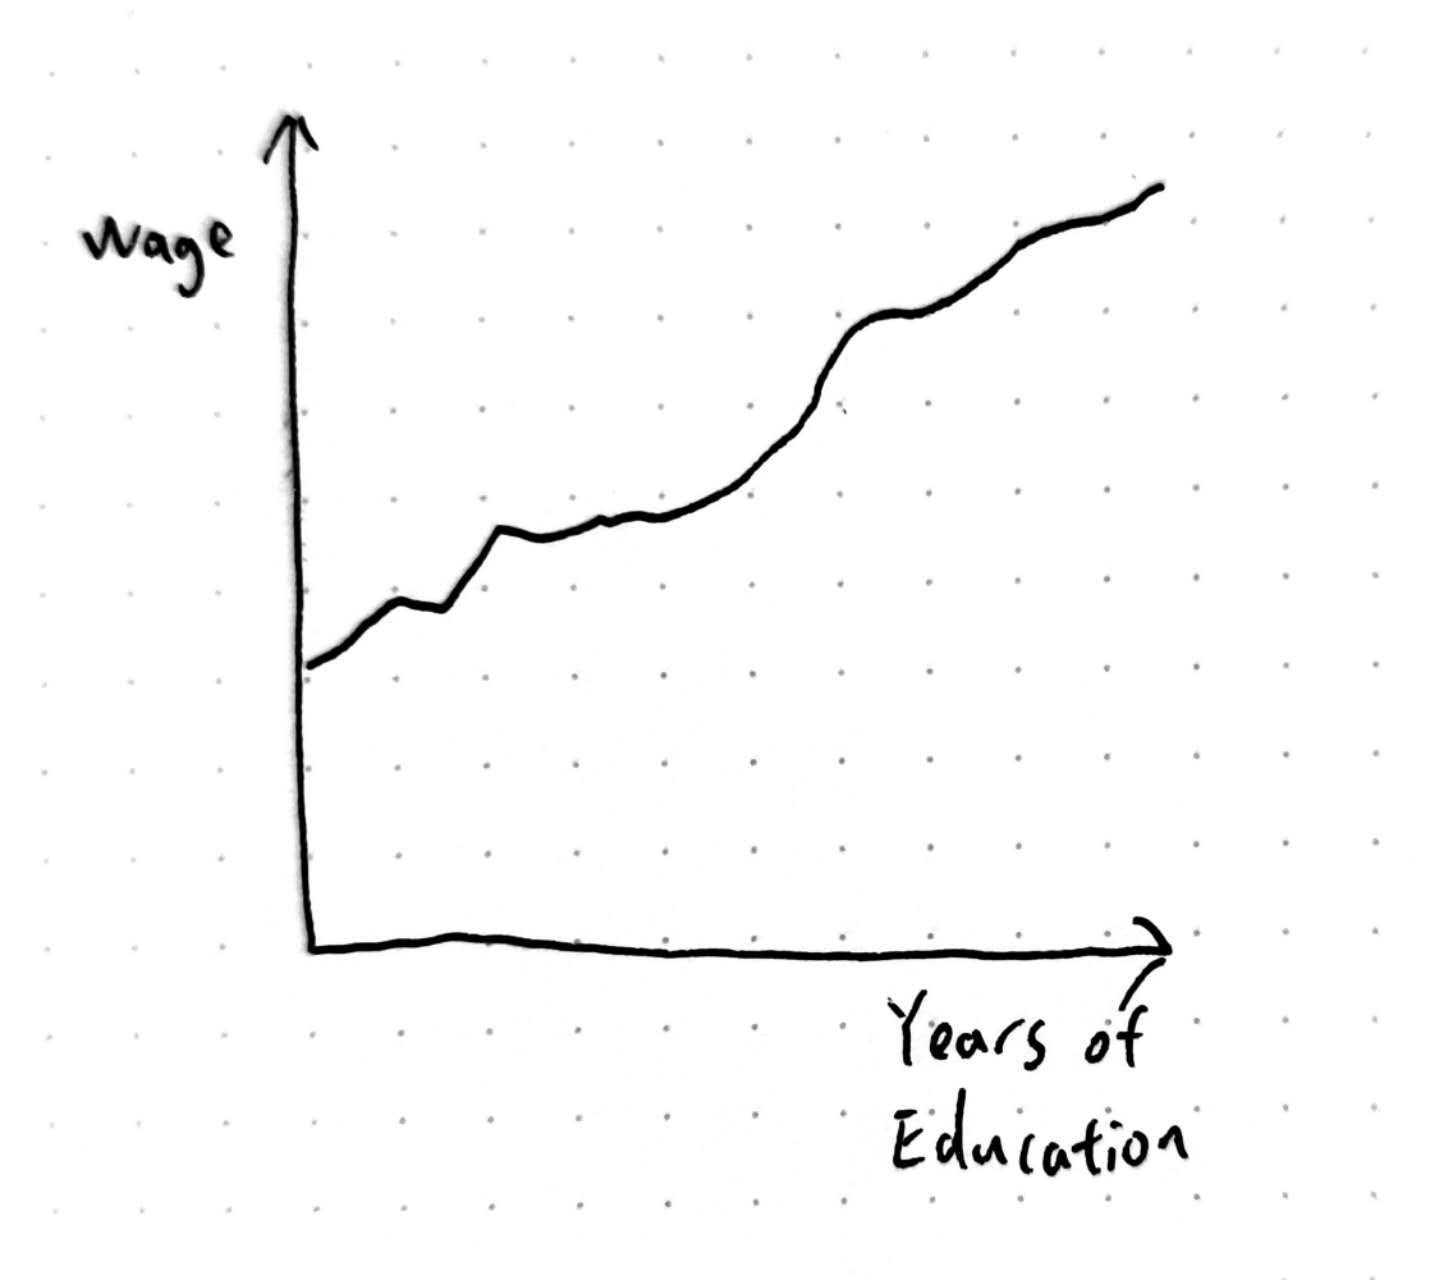 Wage
Years of
Education